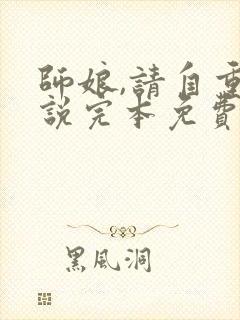 師娘,請自重
說完本免費
黑風洞